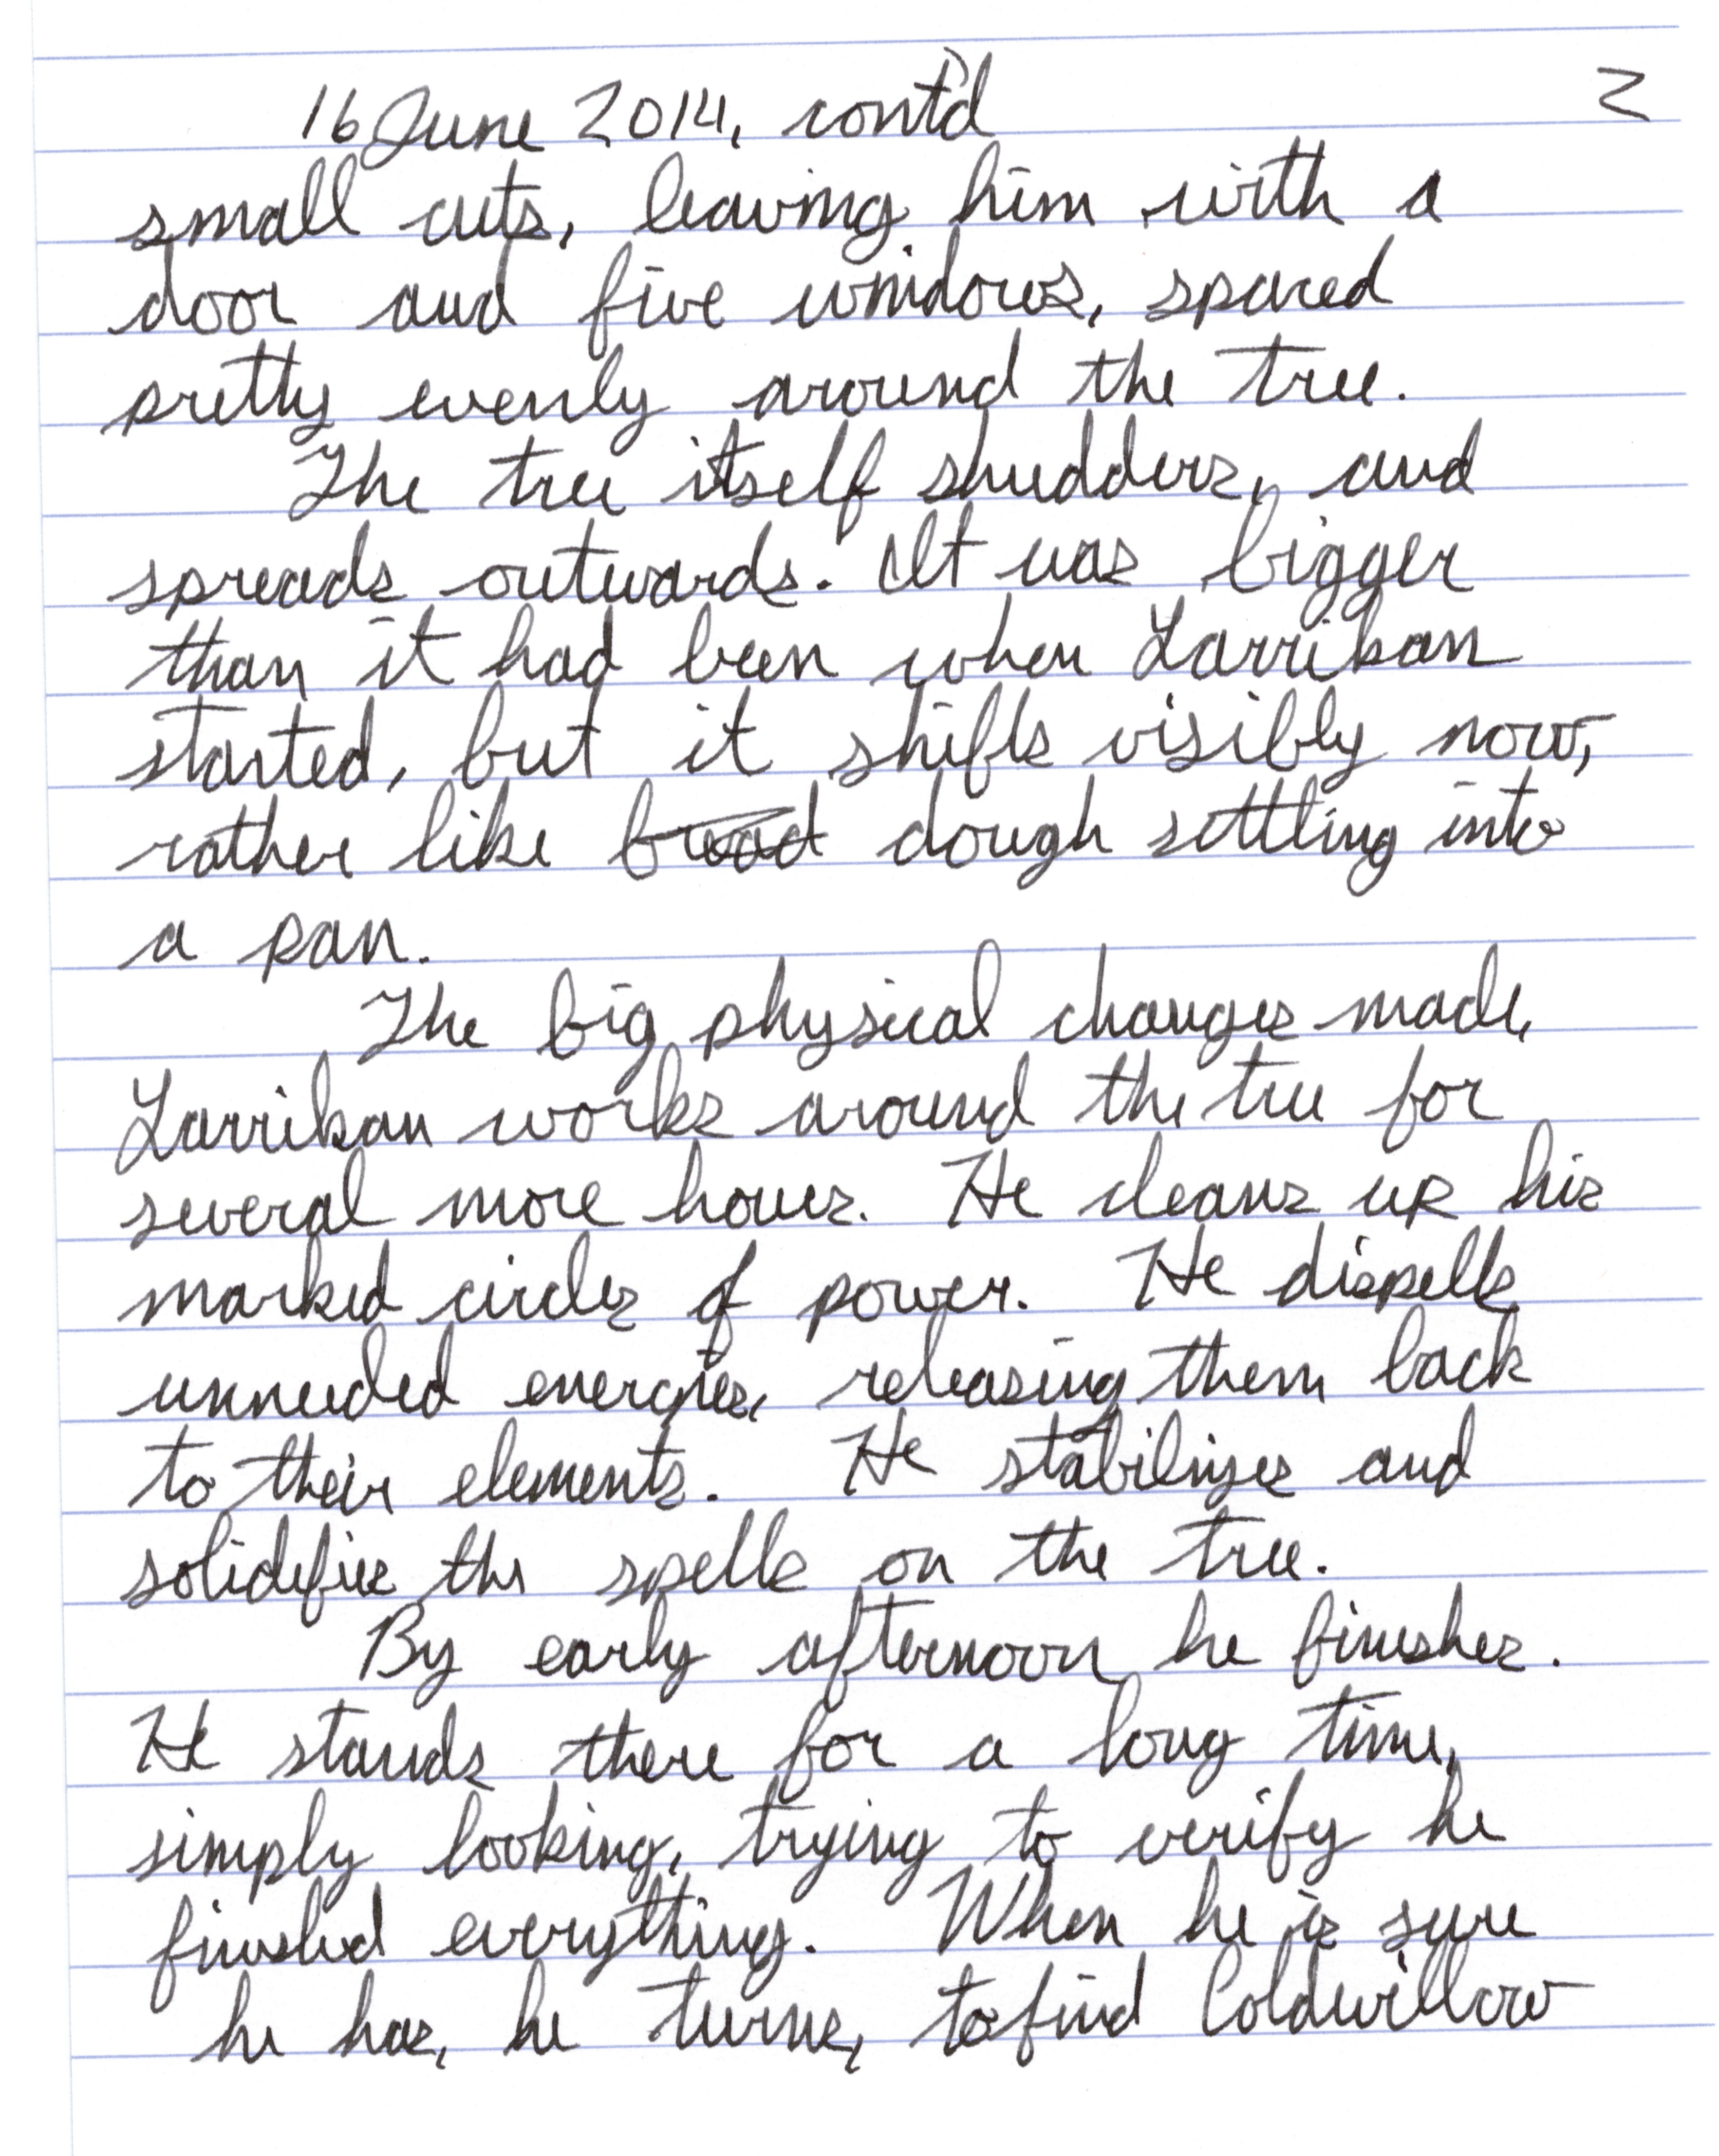 16 June 2014, cont'd 2
small cuts, leaving him with a
door and five windows, spaced
pretty evenly around the tree.
The tree itself shudders, and
spreads outwards. It was bigger
than it had been when Larrikan
started, but it shifts visibly now,
rather like bread dough settling into
a pan.
The big physical changes made,
Larrikan works around the tree for
several more hours. He cleans up his
marked circles of power. He dispells
unneeded energies, releasing them back
to their elements. He stabilizes and
solidifies the spells on the tree.
By early afternoon he finishes.
He stands there for a long time,
simply looking, trying to verify he
finished everything. When he is sure
he has, he turns, to find Coldwillow